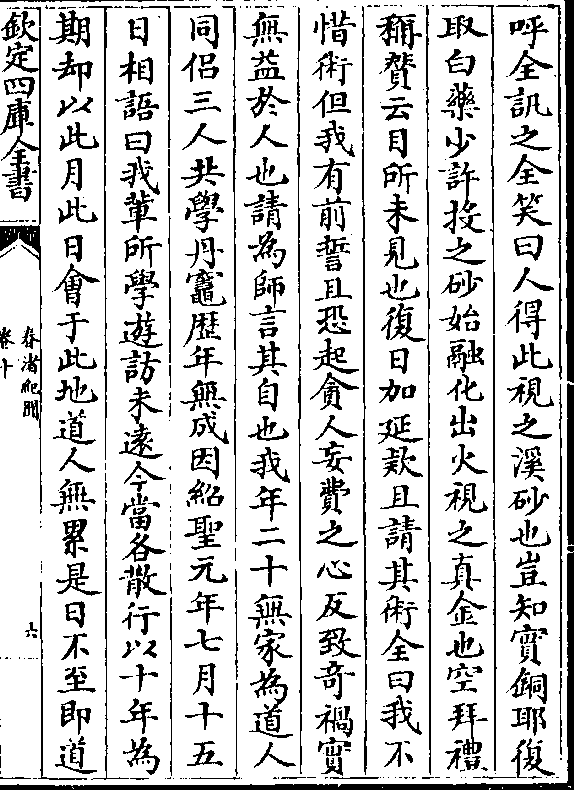 呼全訊之全笑曰人得此視之溪砂也豈知實銅耶復
取白藥少許投之砂始融化出火視之真金也空拜禮
稱賛云目所未見也復日加延欵且請其術全曰我不
惜術但我有前誓且恐起貪人妄費之心反致竒禍實
無益於人也請為師言其自也我年二十無家為道人
同侣三人共學丹竈歴年無成因紹聖元年七月十五
日相語曰我輩所學遊訪未逺今當各散行以十年為
期却以此月此日會于此地道人無累是日不至即道
欽定四庫全書
春渚紀聞
卷十
六